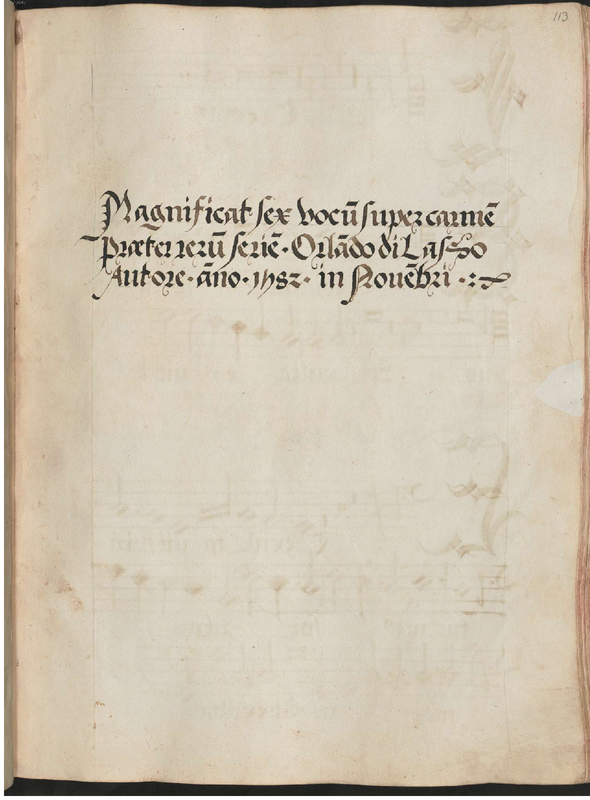 113
Magnificat sex vocū super carmē
Præter rerū seriē · Orlādo di Lasso
Autore · āno · 1582 · in Novēbri ·:~